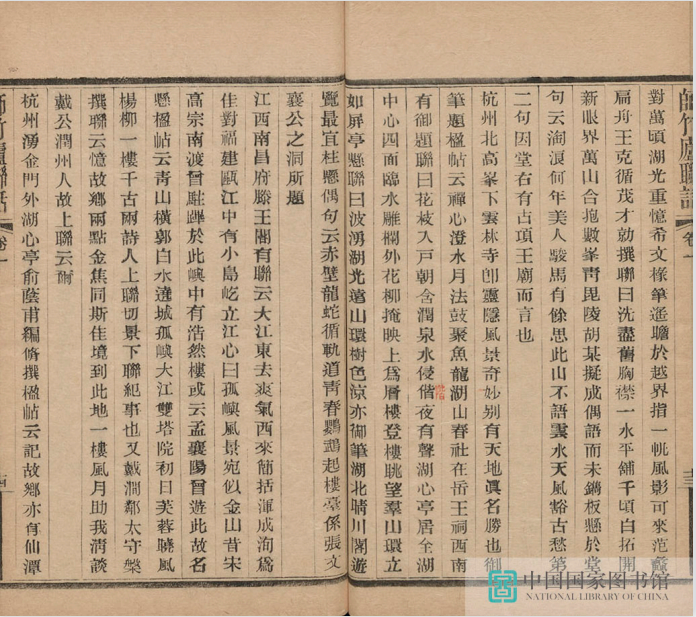 師竹廬聯話
卷一
十三
對萬頃湖光重憶希文椽筆遙瞻於越界指一帆風影可來范蠡
扁舟王克循茂才勍撰聯曰洗盡舊胸襟一水平舖千頃白拓開
新眼界萬山合抱數峯靑毘陵胡某擬成偶語而未鐫板懸於堂
句云洶澒何年美人駿馬有餘思此山不語雲水天風豁古愁第
二句因堂右有古項王廟而言也
杭州北高峯下雲林寺卽靈隱風景奇妙別有天地眞名勝也御
筆題楹帖云禪心澄水月法鼓聚魚龍湖山春社在岳王祠西南
有御題聯曰花枝入戸朝含潤泉水侵偕夜有聲湖心亭居全湖
階
中心四面臨水雕欄外花柳掩映上爲層樓登樓眺望羣山環立
如屏亭懸聯曰波湧湖光遠山環樹色涼亦御筆湖北晴川閣遊
覽最宜柱懸偶句云赤壁龍蛇循軌道靑春鸚鵡起樓臺係張文
襄公之洞所題
江西南昌府滕王閣有聯云大江東去爽氣西來簡括渾成洵爲
佳對福建甌江中有小島屹立江心曰孤嶼風景宛似金山昔宋
高宗南渡曾駐蹕於此嶼中有浩然樓或云孟襄陽曾遊此故名
懸楹帖云靑山橫郭白水遶城孤嶼大江雙塔院初日芙蓉曉風
楊柳一樓千古兩詩人上聯切景下聯紀事也又戴澗鄰太守槃
撰聯云憶故鄉兩點金焦同斯佳境到此地一樓風月助我淸談
戴公潤州人故上聯云爾
杭州湧金門外湖心亭俞蔭甫編脩撰楹帖云記故鄉亦有仙潭
師竹廬聯話
卷一
十四
中国国家图书馆
NATIONAL LIBRARY OF CHINA